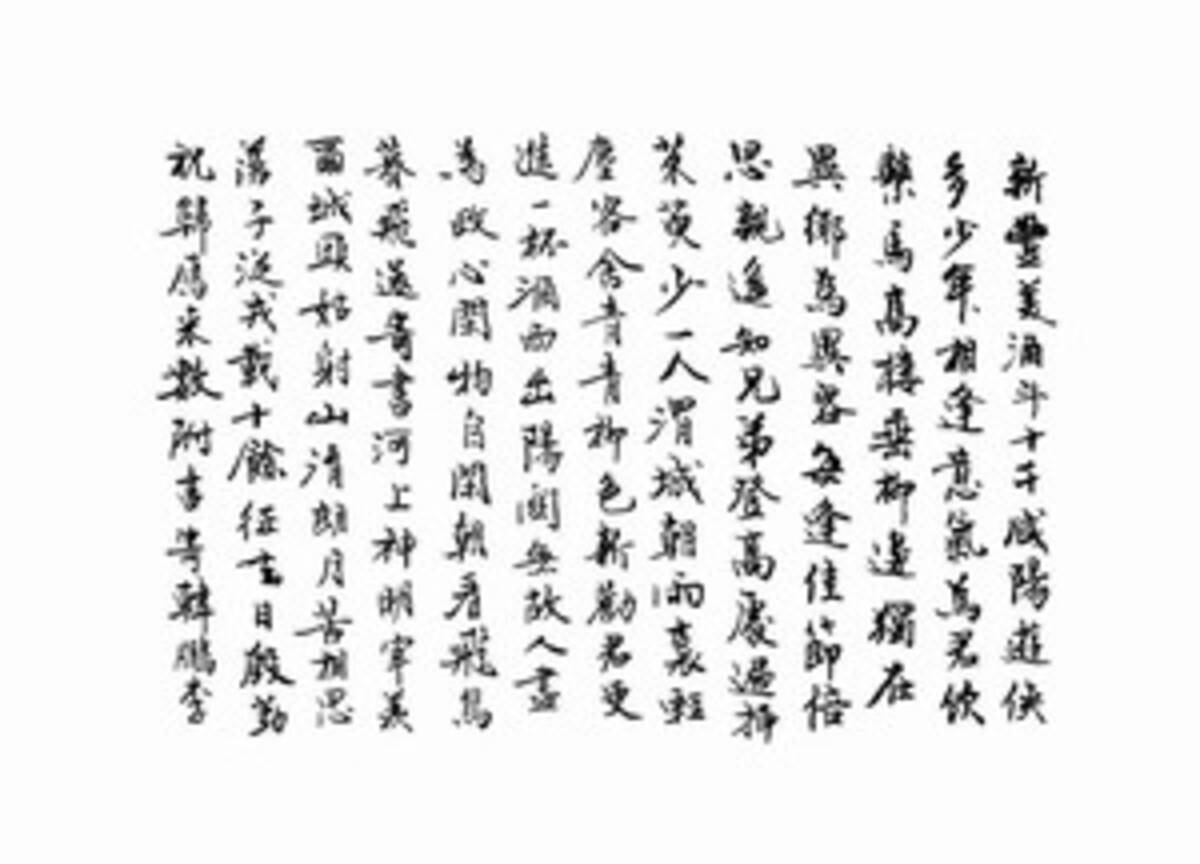 新豐美酒斗十千咸陽遊俠
多少年相逢意氣為君飲
繫馬高樓垂柳邊獨在
異鄉為異客每逢佳節倍
思親遙知兄弟登高處遍插
茱萸少一人渭城朝雨裛輕
塵客舍青青柳色新勸君更
進一杯酒西出陽關無故人盡
為政心閒物自閒朝看飛鳥
暮飛還寄書河上神明宰羨
爾城頭姑射山清顏月苦相思
蕩子從戎載十餘征去日殷勤
祝歸鴈來數附書寄韓鵬李